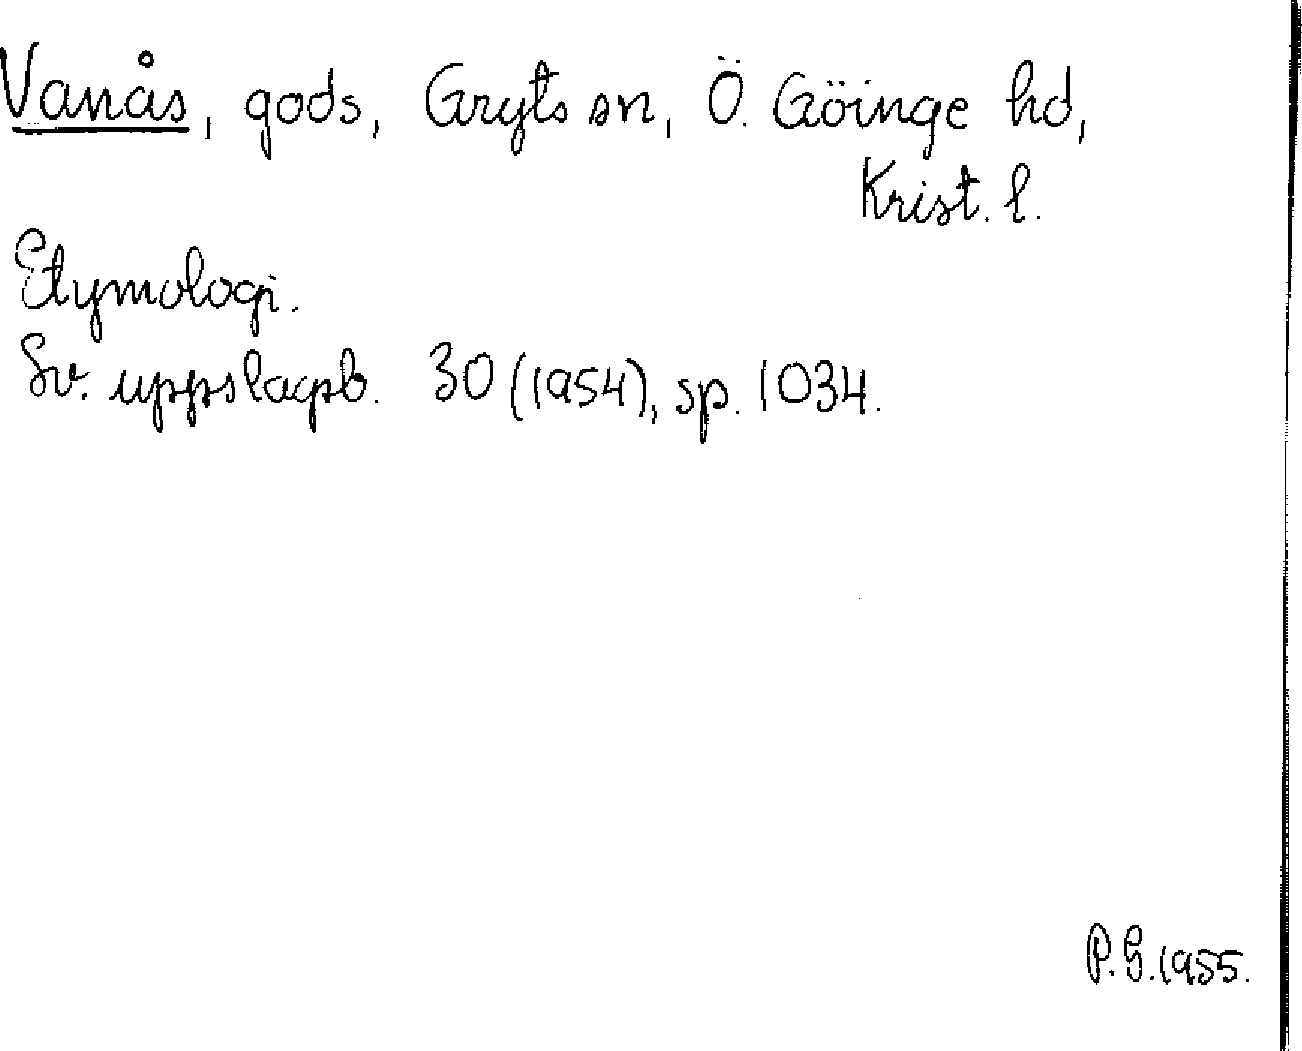 Vanås, gods, Gryts sn, Ö. Göinge hd,
Krist. l.
Etymologi.
Sv. uppslagsb. 30 (1954), sp. 1034.
P.G. 1955.